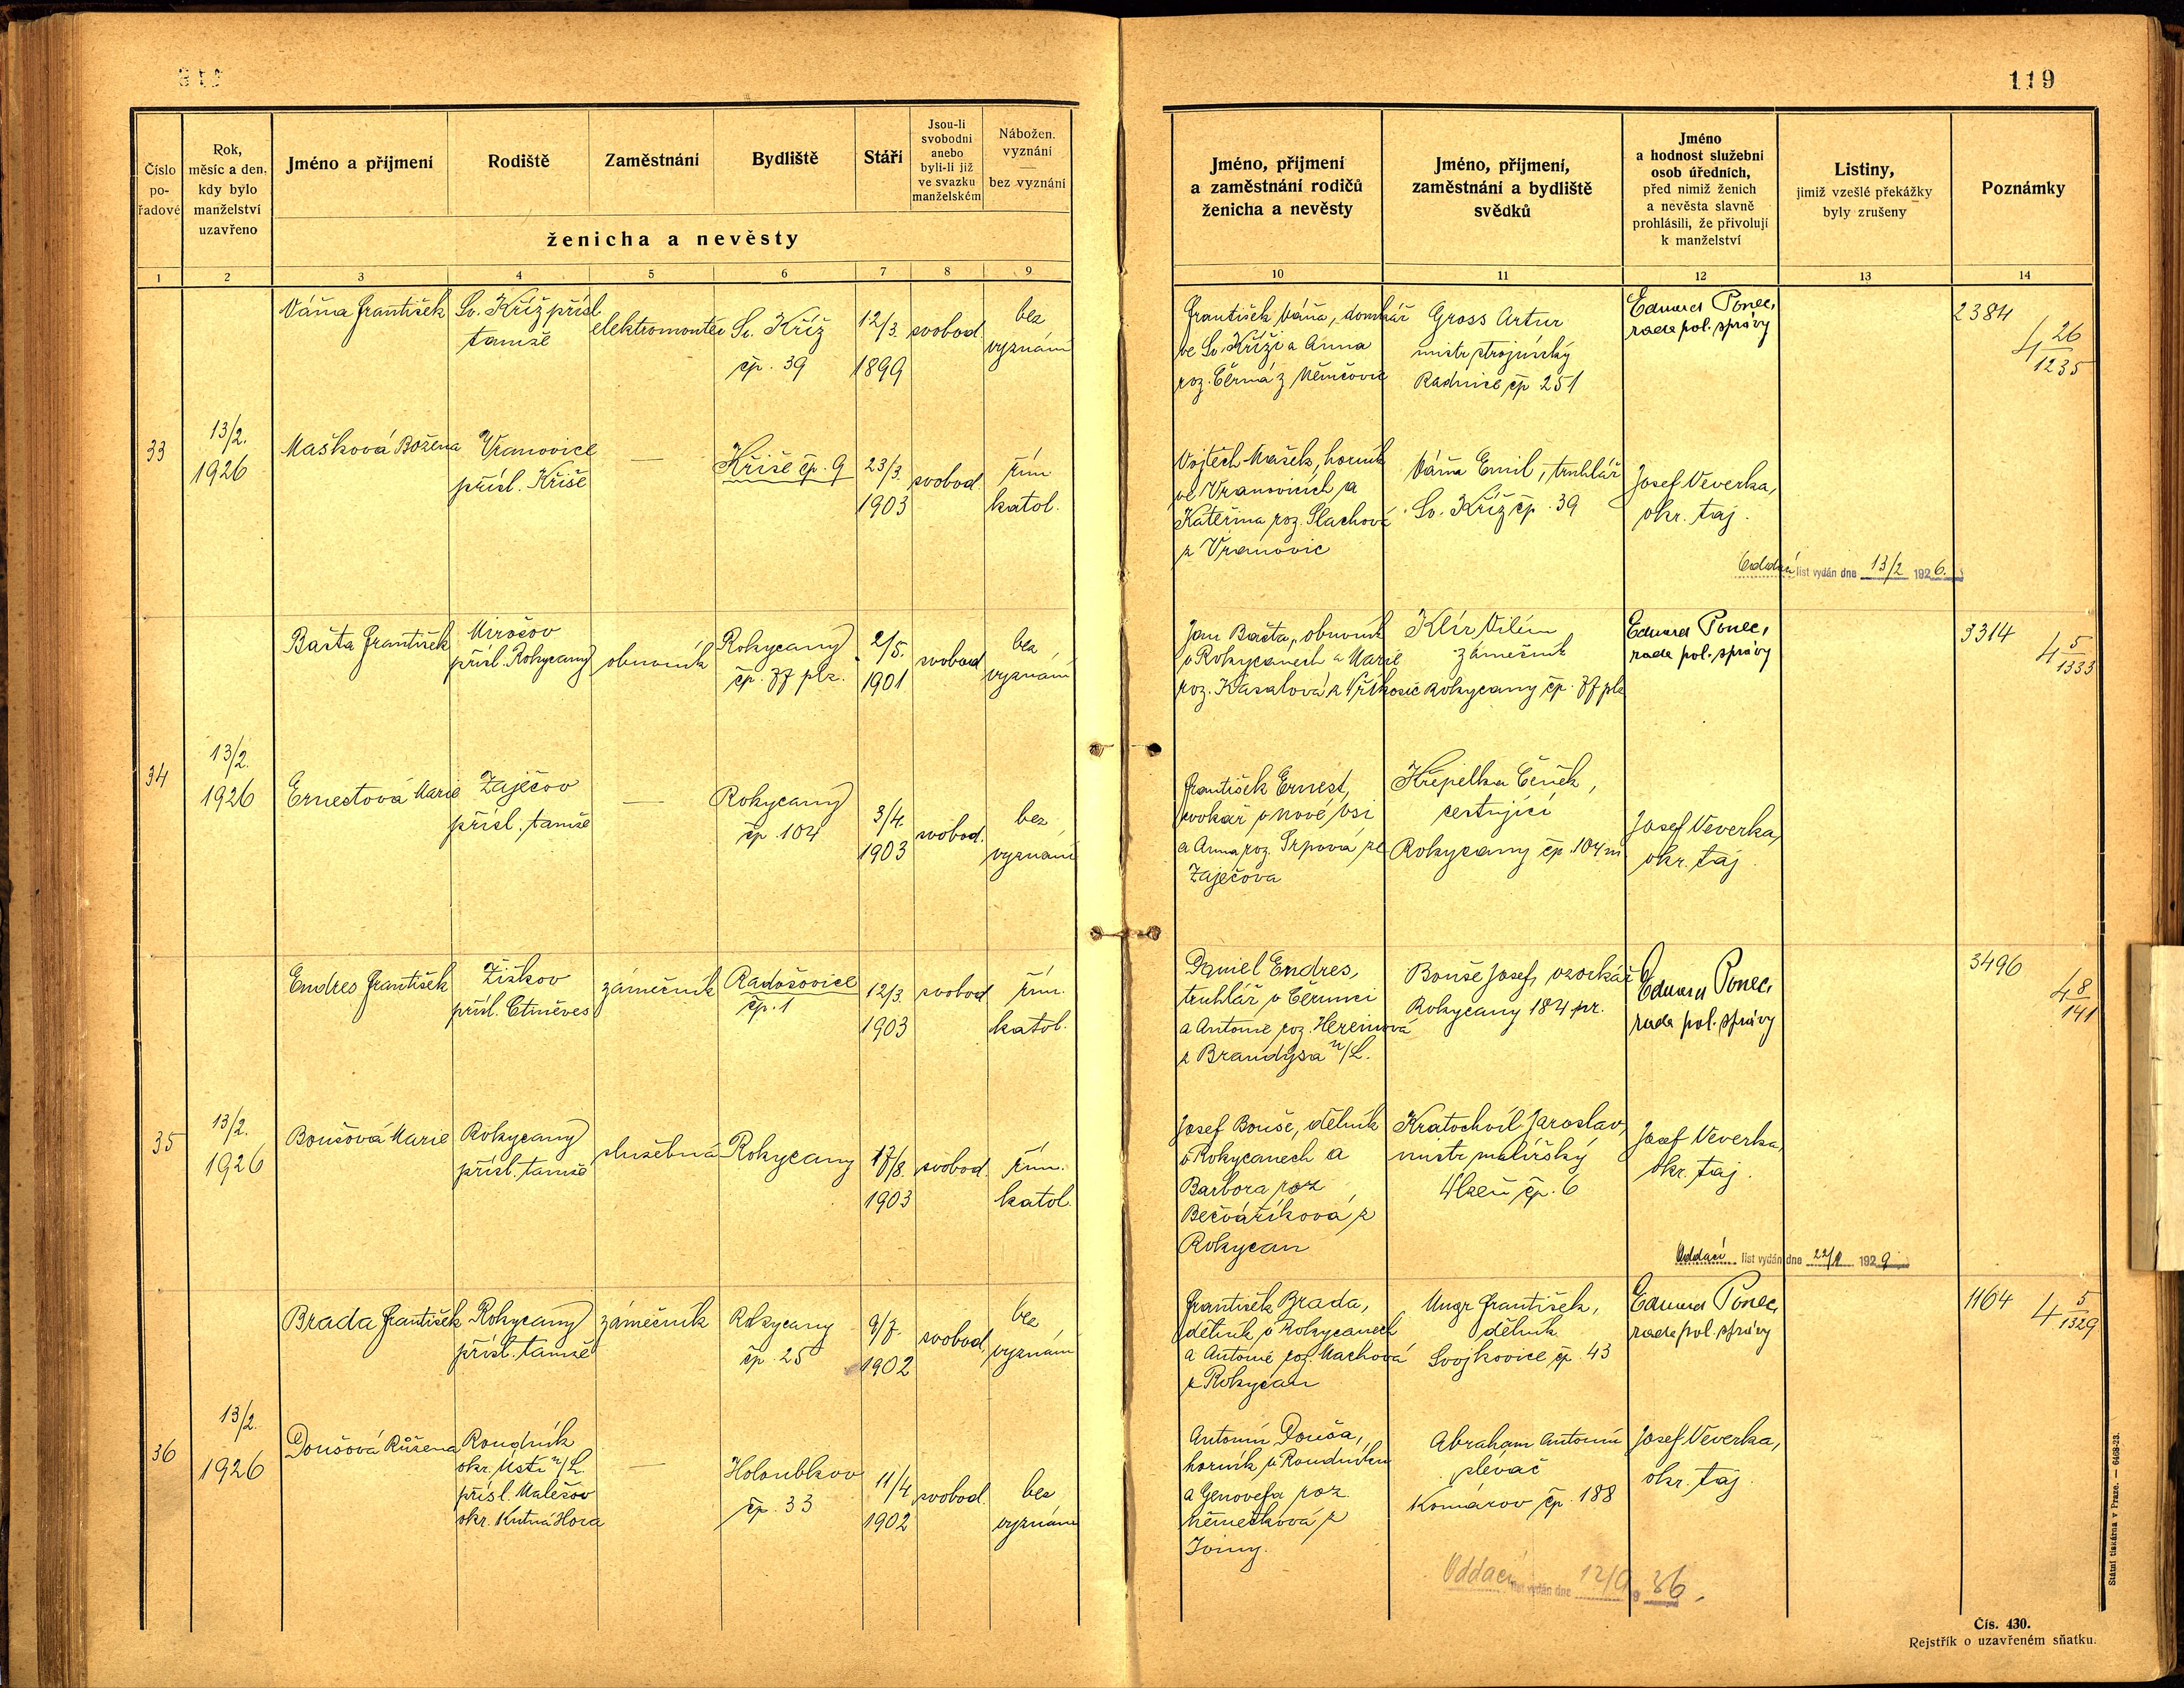 119
Číslo pořadové
Rok, měsíc a den, kdy bylo manželství uzavřeno
Jméno a příjmení
Rodiště
Zaměstnání
Bydliště
Stáří
Jsou-li svobodni anebo byli-li již ve svazku manželském
Nábožen. vyznání — bez vyznání
ženicha a nevěsty
1 2 3 4 5 6 7 8 9
Váňa František
Sv. Kříž přísl.
tamže
elektromontér
Sv. Kříž
čp. 39
12/3.
1899
svobod.
bez
vyznání
33
13/2.
1926
Mašková Božena
Vranovice
přísl. Kříše
—
Kříše čp. 9
23/3.
1903
svobod.
řím
katol.
Bašta František
Mirošov
přísl. Rokycany
obuvník
Rokycany
čp. 77 plz.
2/5.
1901
svobod.
bez
vyznání
34
13/2.
1926
Ernestová Marie
Zaječov
přísl. tamže
—
Rokycany
čp. 104
3/4.
1903
svobod.
bez
vyznání
Endres František
Žižkov
přísl. Ctiněves
zámečník
Radošovice
čp. 1
12/3.
1903
svobod.
řím.
katol.
35
13/2.
1926
Boušová Marie
Rokycany
přísl. tamže
služebná
Rokycany
17/8.
1903
svobod.
řím.
katol.
Brada František
Rokycany
přísl. tamže
zámečník
Rokycany
čp. 25
9/7.
1902
svobod.
bez
vyznání
36
13/2.
1926
Doušová Růžena
Roudník
okr. Ústí n/L.
přísl. Malešov
okr. Kutná Hora
—
Holoubkov
čp. 33
11/4
1902
svobod.
bez
vyznání
Jméno, příjmení a zaměstnání rodičů ženicha a nevěsty
Jméno, příjmení, zaměstnání a bydliště svědků
Jméno a hodnost služební osob úředních, před nimiž ženich a nevěsta slavně prohlásili, že přivolují k manželství
Listiny, jimiž vzešlé překážky byly zrušeny
Poznámky
10 11 12 13 14
František Váňa, domkář
ve Sv. Kříži a Anna
roz. Černá z Němčovic
Gross Artur
mistr strojnický
Radnice čp 251
Eduard Ponec,
rada pol. správy
2384
4 26/1235
Vojtěch Mašek, horník
ve Vranovicích a
Kateřina roz. Slachová
z Vranovic
Váňa Emil, truhlář
Sv. Kříž čp. 39
Josef Veverka,
okr. taj.
Oddací list vydán dne 13/2 1926.
Jan Bašta, obuvník
v Rokycanech a Marie
roz. Kasalová z Vřískosic
Klír Vilém
zámečník
Rokycany čp. 77 plz
Eduard Ponec,
rada pol. správy
3314
4 5/1333
František Ernest,
cvokář v Nové Vsi
a Anna roz. Srpová ze
Zaječova
Křepelka Čeněk,
cestující
Rokycany čp. 104 m
Josef Veverka,
okr. taj.
Daniel Endres,
truhlář v
a Antonie roz.
z Brandýsa n/L.
Bouše Josef, vzorkář
Rokycany 184 pr.
Eduard Ponec,
rada pol. správy
3496
4 8/141
Josef Bouše, dělník
v Rokycanech a
Barbora roz
Bečváříková z
Rokycan
Kratochvíl Jaroslav,
mistr malířský
Plzeň čp. 6
Josef Veverka,
okr. taj.
Oddací list vydán dne 1929
František Brada,
dělník v Rokycanech
a Antonie roz. Machová
z Rokycan
Ungr František,
dělník
Svojkovice čp. 43
Eduard Ponec,
rada pol. správy
1164
4 5/1329
Antonín Douša,
horník v Roudníku
a Genovefa roz.
Němečková z
Abraham Antonín
slévač
Komárov čp. 188
Josef Veverka,
okr. taj.
Oddací list vydán dne 12/9 36.
Státní tiskárna v Praze. — 6468-23.
Čís. 430.
Rejstřík o uzavřeném sňatku.